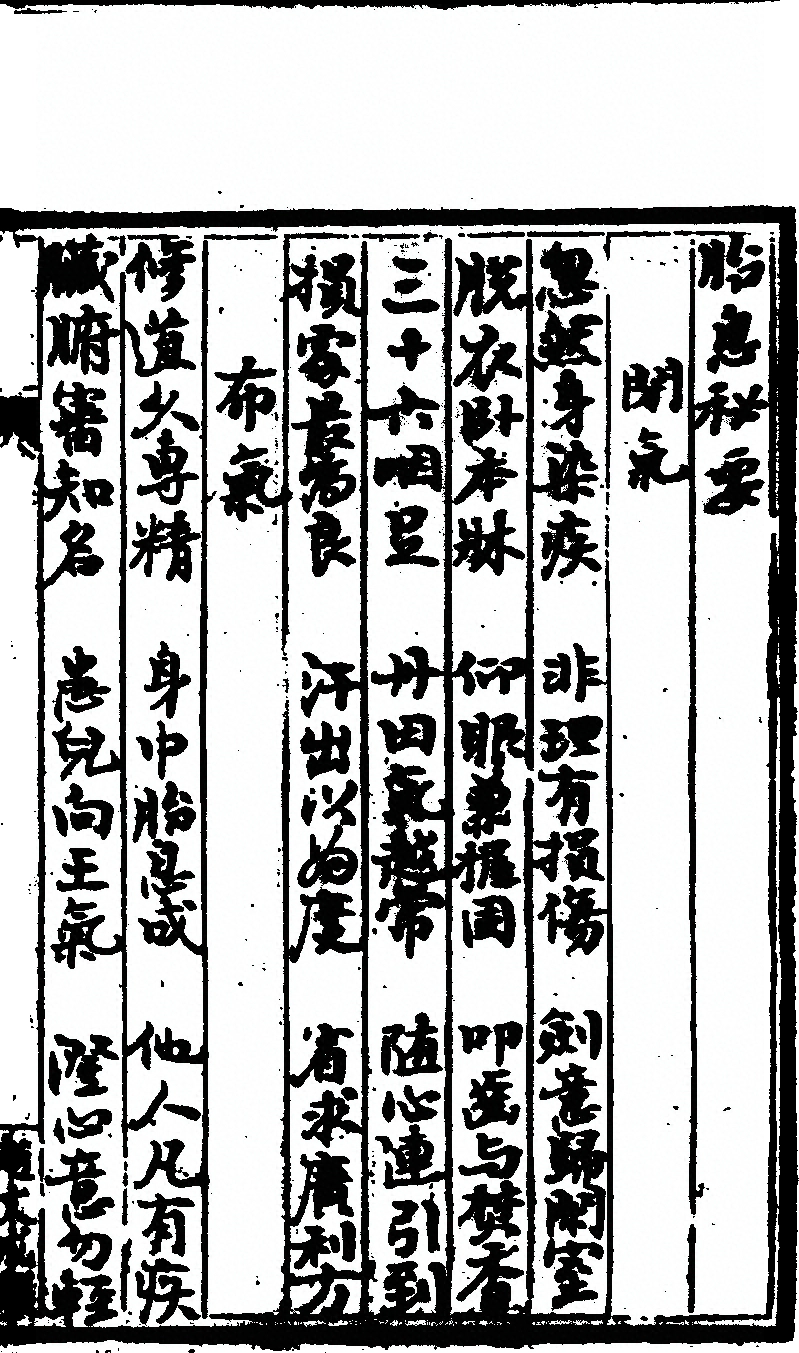 胎息秘要
閉氣
忽然身染疾 非理有損傷 劍意歸閑室
脫衣卧本牀 仰眠兼握固 叩齒与焚香
三十六咽足 丹田氣越常 隨心連引到
損處最為良 汗出以為度 省求廣利方
布氣
修道久專精 身中胎息成 他人凡有疾
臟腑審知名 患兒向王氣 澄心意勿輕